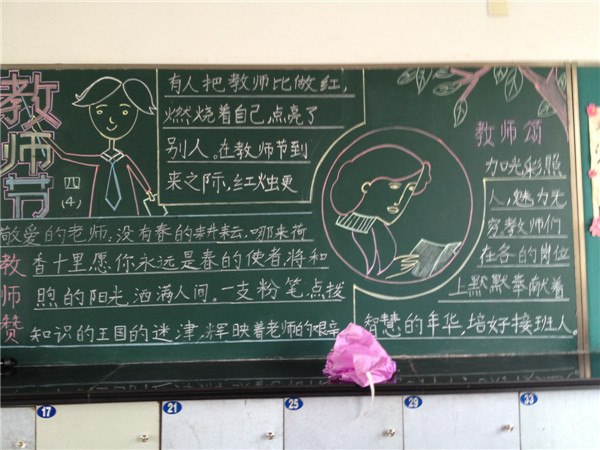 教师节
四
(4)
有人把教师比做红,
燃烧着自己,点亮了
别人。在教师节到
来之际,红烛更
教师颂
加光彩照
人,魅力无
穷,教师们
在各的岗位
上默默奉献着
智慧的年华,培好接班人。
教师赞
敬爱的老师:没有春的耕耘,哪来荷
香十里,愿你永远是春的使者,将和
煦的阳光,洒满人间。一支粉笔,点拨
知识的王国的迷津,辉映着老师的艰辛
17
21
25
29
33